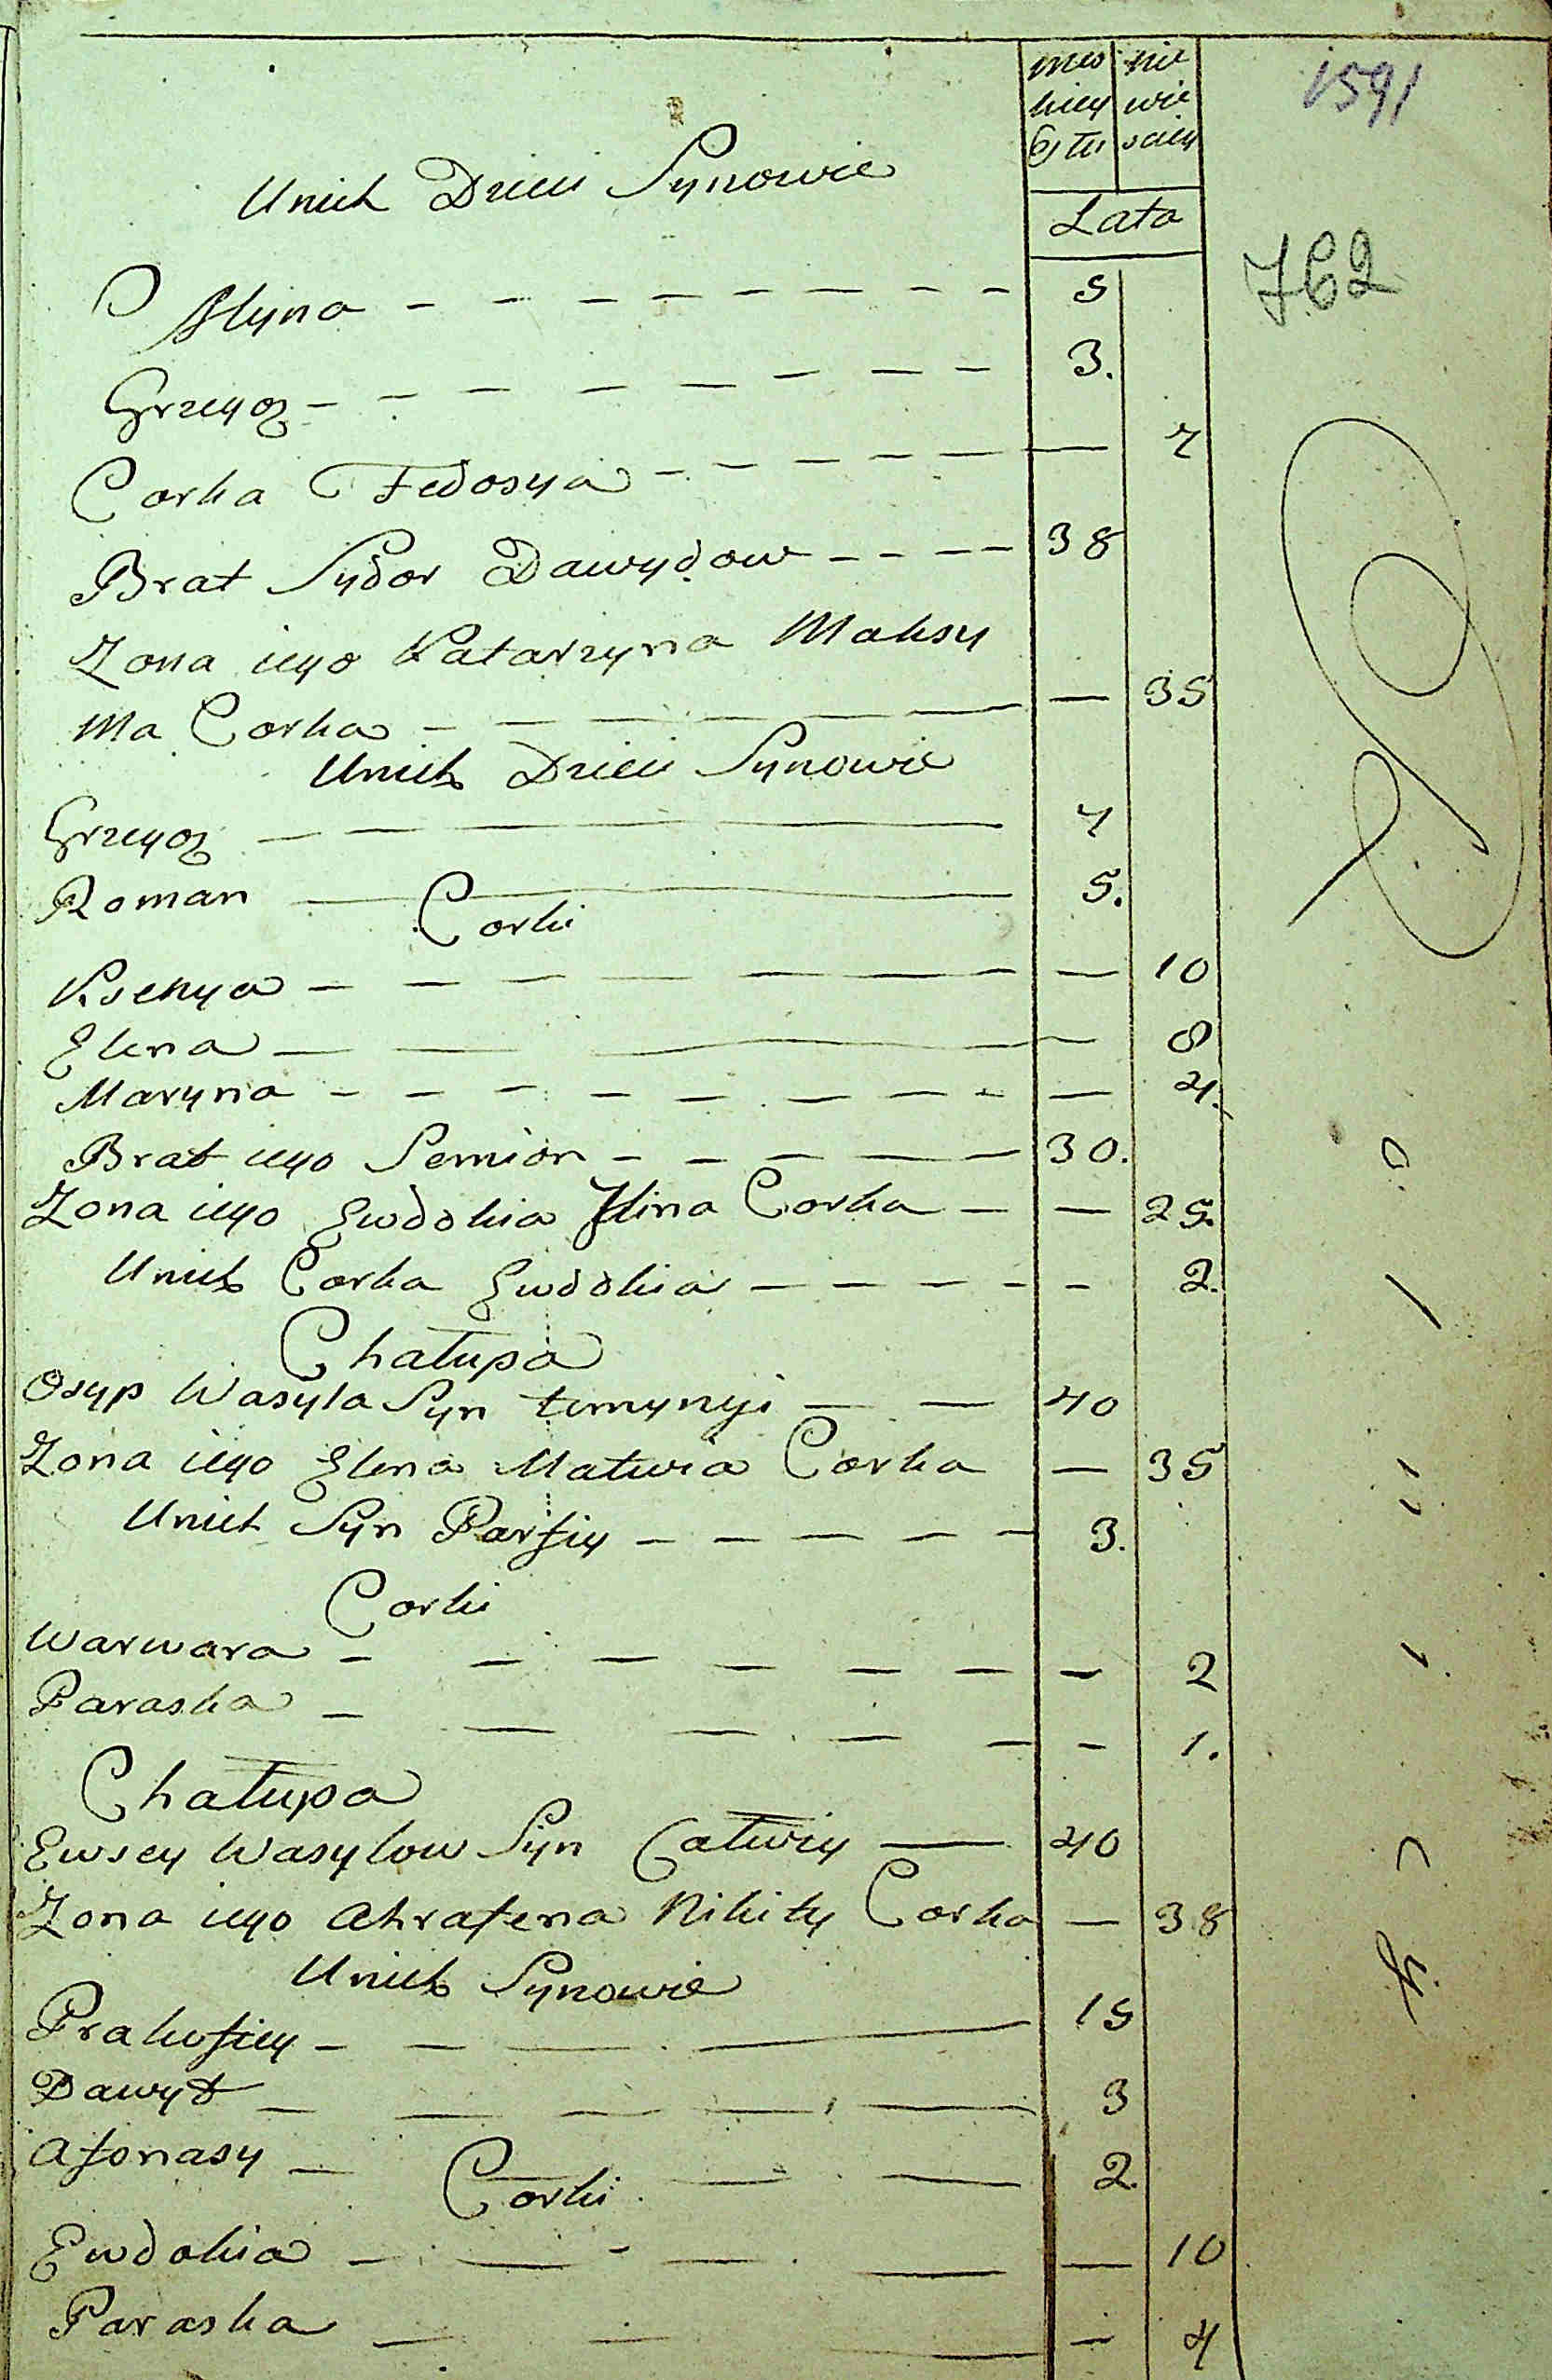 mes nie
kiey wie
Gątu sciey
1591
Unich Dzieci Synowie
Lata
762
Ilyna - - - - - - - - 5
Grzegoz - - - - - - - - 3.
Corka Fedosya - - - - - — 7
Brat Sydor Dawydow - - - - 38
Zona iego Katarzyna Maksy
ma Corka - - - - - — 35
Unich Dzieci Synowie
Grzegoz — — — 7
Roman — 5.
Corki
Ksenya - - - - - - — 10
Elena — — — 8
Maryna - - - - - - - - — 4.
Brat iego Semion - - - - - 30.
Zona iego Ewdokia Ilina Corka - — 25.
Unich Corka Ewdokia - - - - - 2.
Chałupa
Osyp Wasyla Syn — — 40
Zona iego Elena Matwia Corka — 35
Unich Syn Parfiy - - - - - 3.
Corki
Warwara - - - - - - - 2
Paraska - - - - - - 1.
Chałupa
Ewsey Wasylow Syn — 40
Zona iego Ahrafena Nikity Corka — 38
Unich Synowie
Prakofiey - - — — 15
Dawyd - - - - — 3
Afonasy - — — 2.
Corki
Ewdokia - — - — — — 10
Paraska - - — - 4